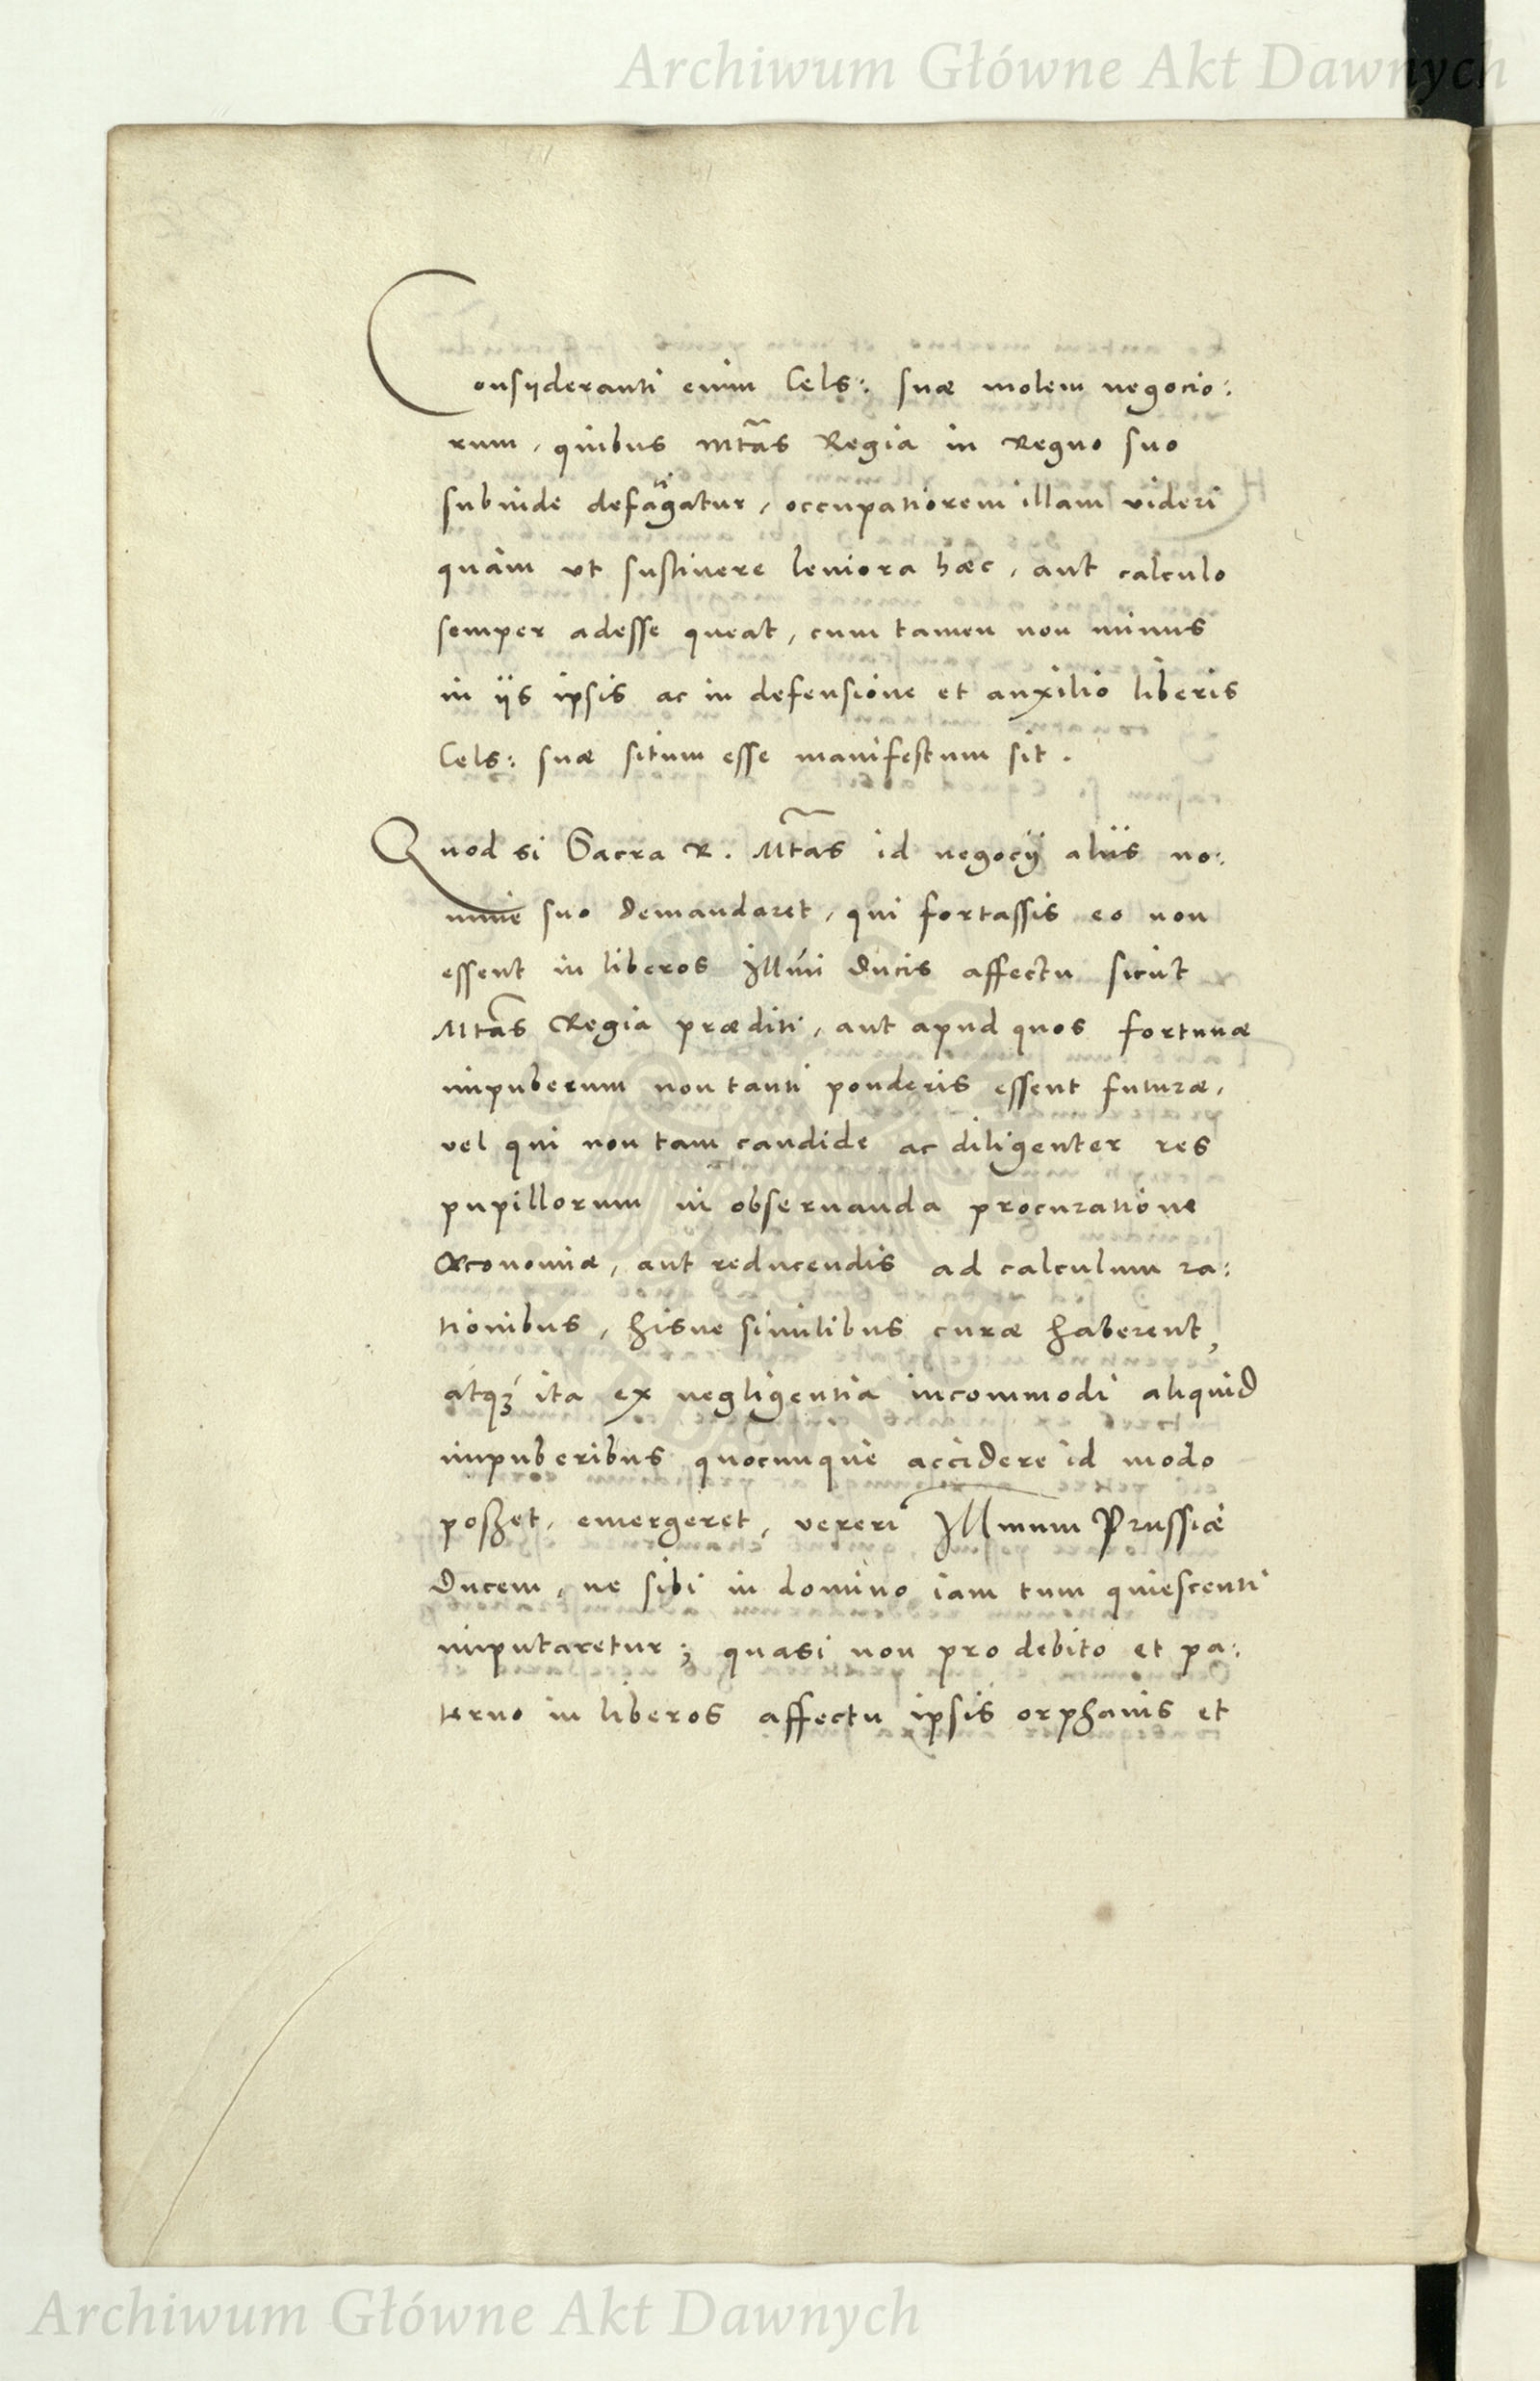 Archiwum Główne Akt Dawnych
Consyderanti enim Cels: suæ molem negocio:
rum, quibus Mtas Regia in Regno suo
subinde defatigatur, occupatiorem illam videri
quàm vt sustinere leniora hæc, aut calculo
semper adesse queat, cum tamen non minus
in ijs ipsis ac in defensione et auxilio liberis
Cels: suæ situm esse manifestum sit.
Quod si Sacra R. Mtas id negocij aliis no:
mine suo demandaret, qui fortassis eo non
essent in liberos Illmi Ducis affectu sicut
Mtas Regia præditi, aut apud quos fortunæ
impuberum non tanti ponderis essent futuræ,
vel qui non tam candide ac diligenter res
pupillorum in obseruanda procuratione
Œconomiæ, aut reducendis ad calculum ra:
tionibus, hisue similibus curæ haberent,
atq3 ita ex negligentia incommodi aliquid
impuberibus quocunque accidere id modo
poßet, emergeret, vereri Illmum Prussiæ
Ducem, ne sibi in domino iam tum quiescenti
imputaretur; quasi non pro debito et pa:
terno in liberos affectu ipsis orphanis et
Archiwum Główne Akt Dawnych